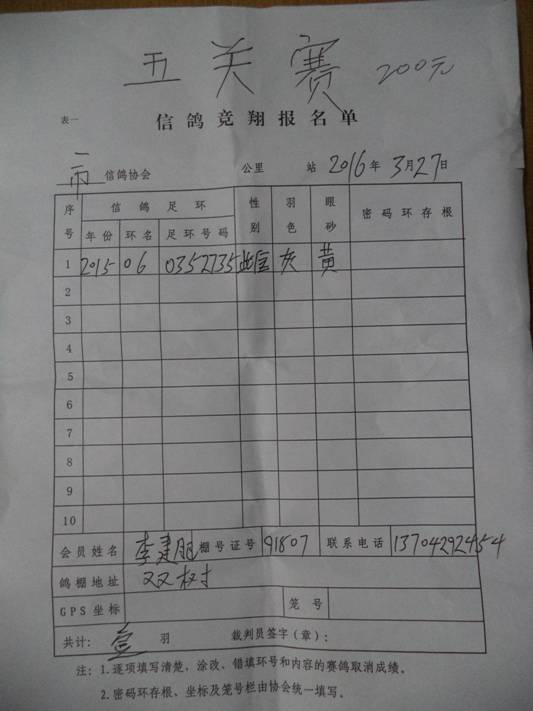 五关赛 200元
表一
信鸽竞翔报名单
信鸽协会 公里 站 2016年3月27日
序号 信鸽足环 性别 羽色 眼砂 密码环存根
年份 环名 足环号码
1 2015 06 0352735 雌 灰 黄
2
3
4
5
6
7
8
9
10
会员姓名 李建 棚号证号 91807 联系电话 13704292454
鸽棚地址 双树
GPS坐标 笼号
共计: 壹 羽 裁判员签字(章):
注: 1.逐项填写清楚、涂改、错填环号和内容的赛鸽取消成绩。
2.密码环存根、坐标及笼号栏由协会统一填写。